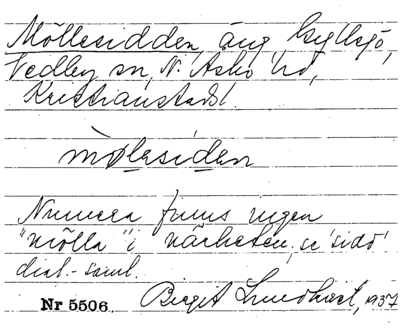 Möllesidden, äng Gyllsjö,
Vedby sn, N. Åsbo hd,
Kristianstads l.
mòlesiden
Numera finns ingen
"mölla" i närheten, se 'sidd'
dial.-saml.
Nr 5506. Birgit Lundkvist, 1937